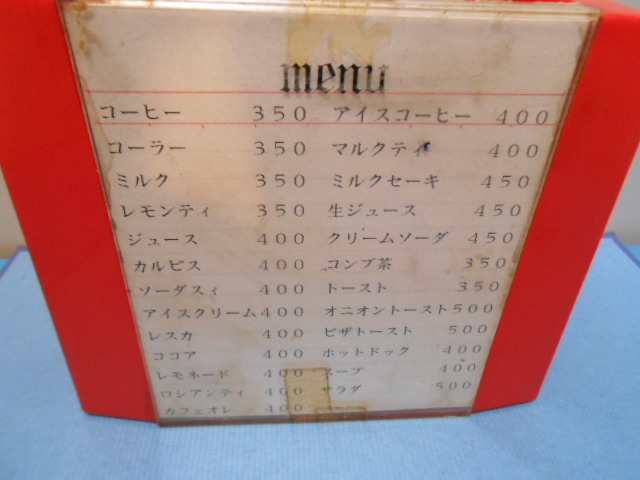 menu
コーヒー 350 アイスコーヒー 400
コーラー 350 マルクティ 400
ミルク 350 ミルクセーキ 450
レモンティ 350 生ジュース 450
ジュース 400 クリームソーダ 450
カルピス 400 コンブ茶 350
ソーダスィ 400 トースト 350
アイスクリーム 400 オニオントースト 500
レスカ 400 ピザトースト 500
ココア 400 ホットドック 400
レモネード 400 スープ 400
ロシアンティ 400 サラダ 500
カフェオレ 400